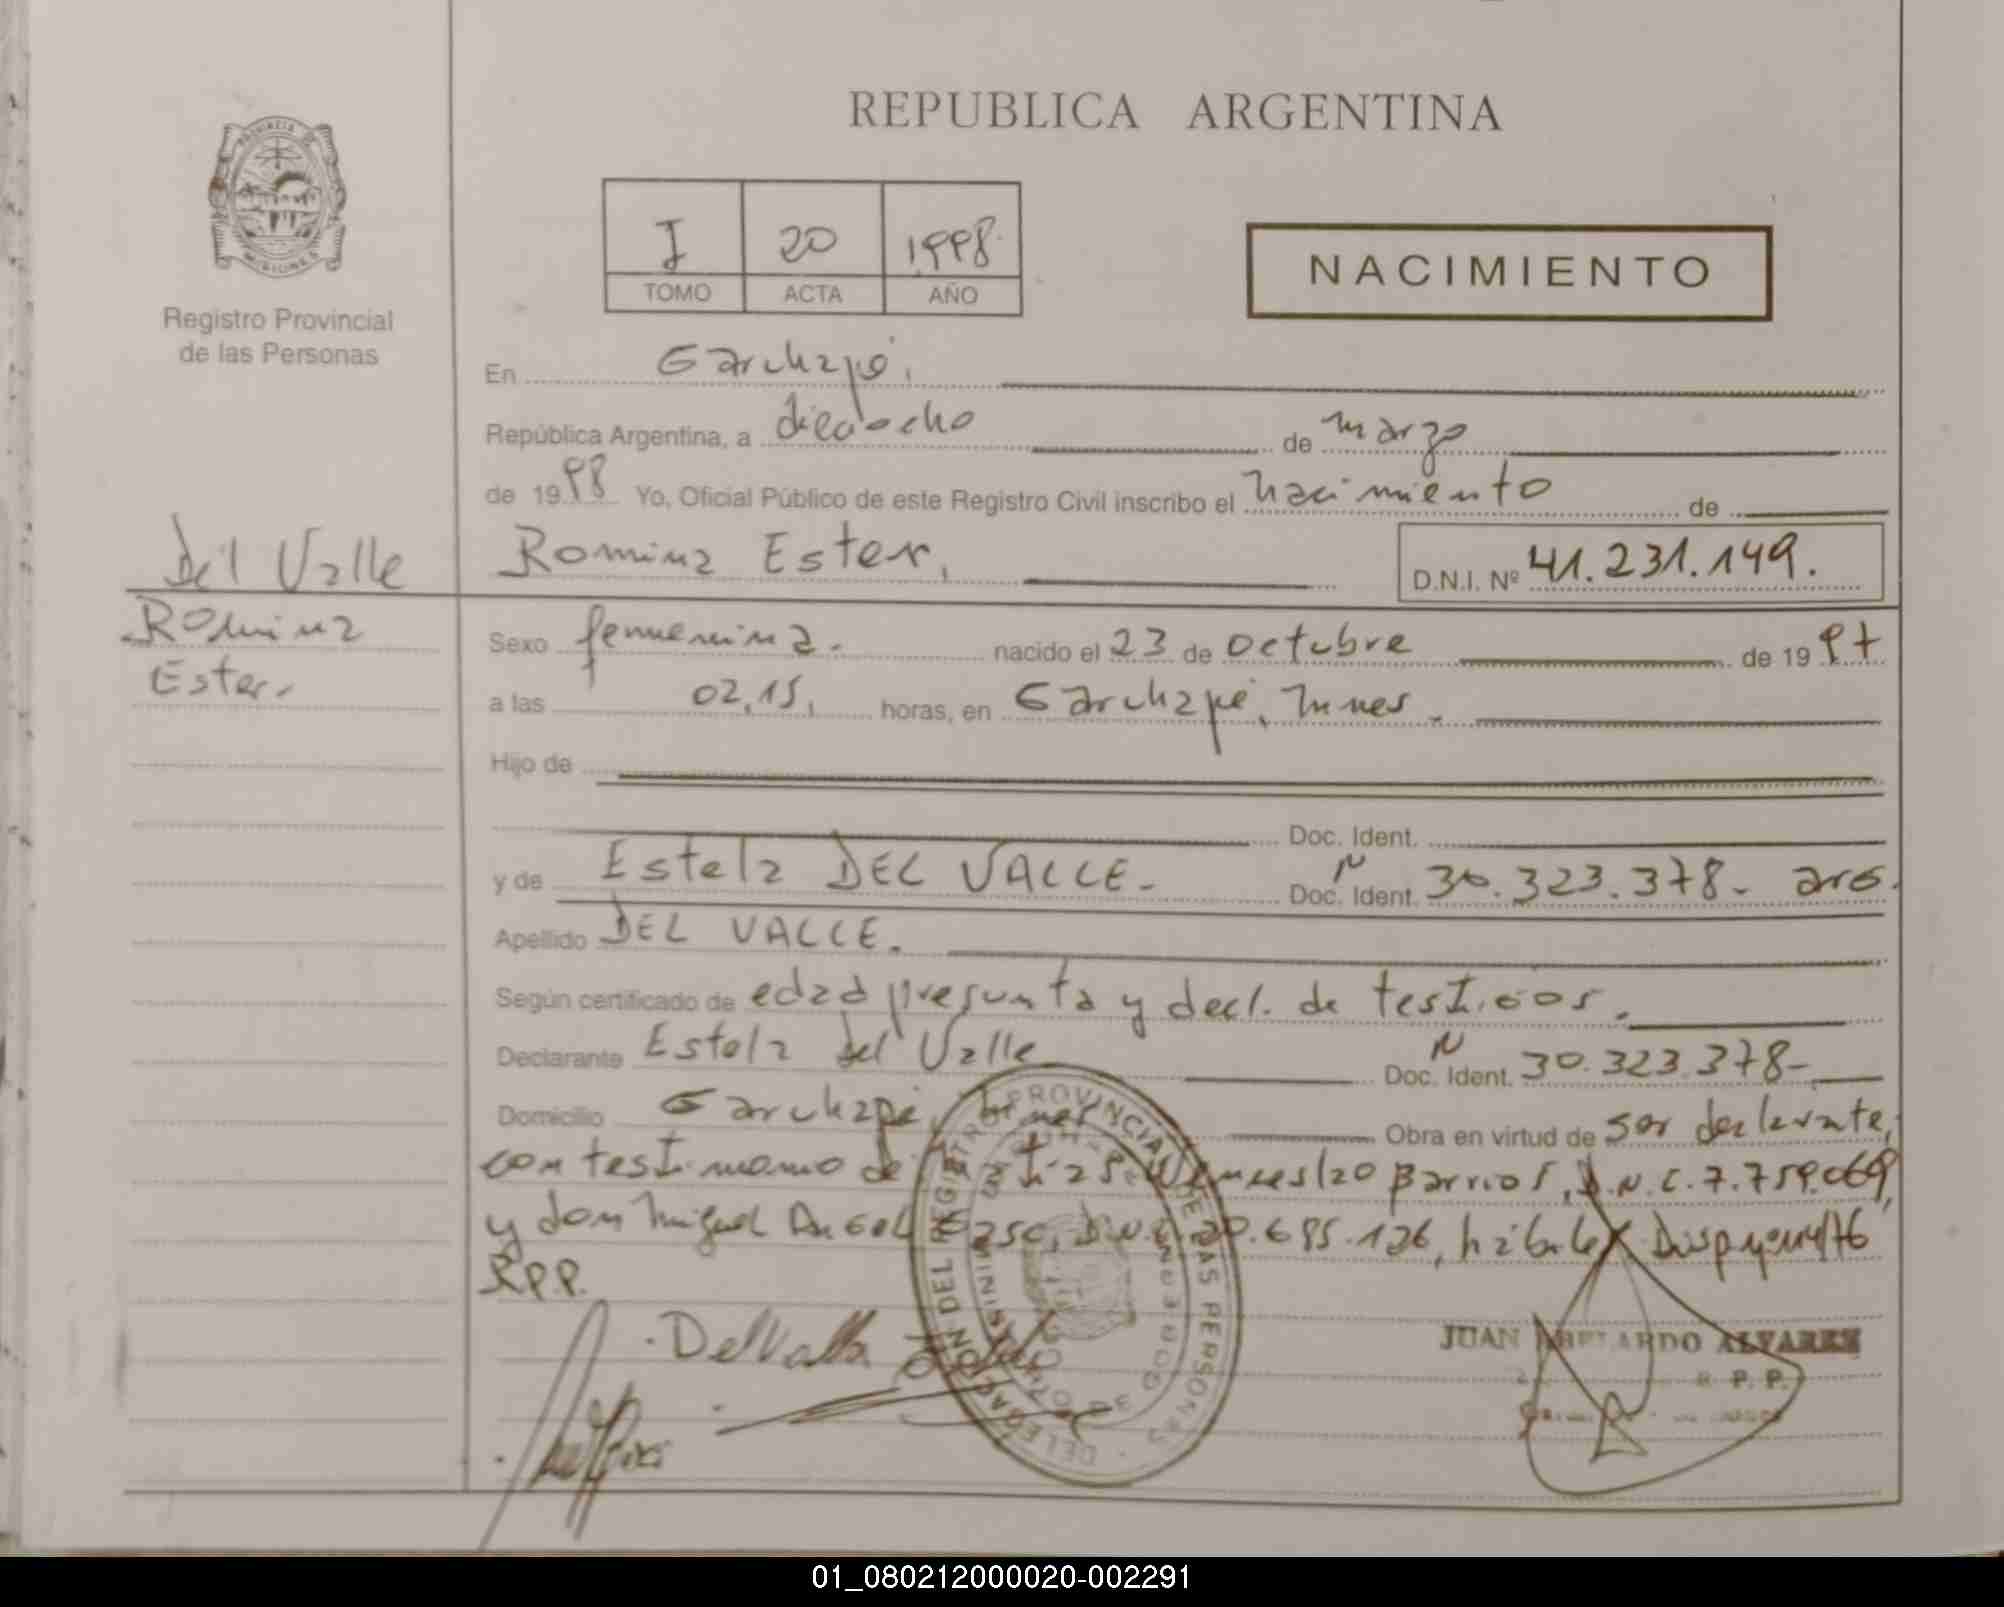 REPUBLICA ARGENTINA
PROVINCIA DE MISIONES
Registro Provincial
de las Personas
I 20 1,998.
TOMO ACTA AÑO
NACIMIENTO
En Garuhapé,
República Argentina, a dieciocho de marzo
de 1998 Yo, Oficial Público de este Registro Civil inscribo el nacimiento de
Del Valle
Romina
Ester.
Romina Ester, D.N.I. Nº 41.231.149.
Sexo femenina. nacido el 23 de octubre de 1997
a las 02,15, horas, en Garuhapé, Mnes.
Hijo de
Doc. Ident.
y de Estela DEL VALLE. Doc. Ident. N 30.323.378- arg.
Apellido DEL VALLE.
Según certificado de edad presunta y decl. de testigos.
Declarante Estela del Valle Doc. Ident. N 30.323.378-
Domicilio Garuhapé, Mnes Obra en virtud de ser declarante,
con testimonio de Barrios, D.N.I. 7.759.069,
y don Miguel Angel D.N.I. 20.695.126, hábiles Disp
R.P.P.
DelValle
DELEGACION DEL REGISTRO PROVINCIAL DE LAS PERSONAS
JUAN ABELARDO ALVAREZ
R. P. P.
01_080212000020-002291